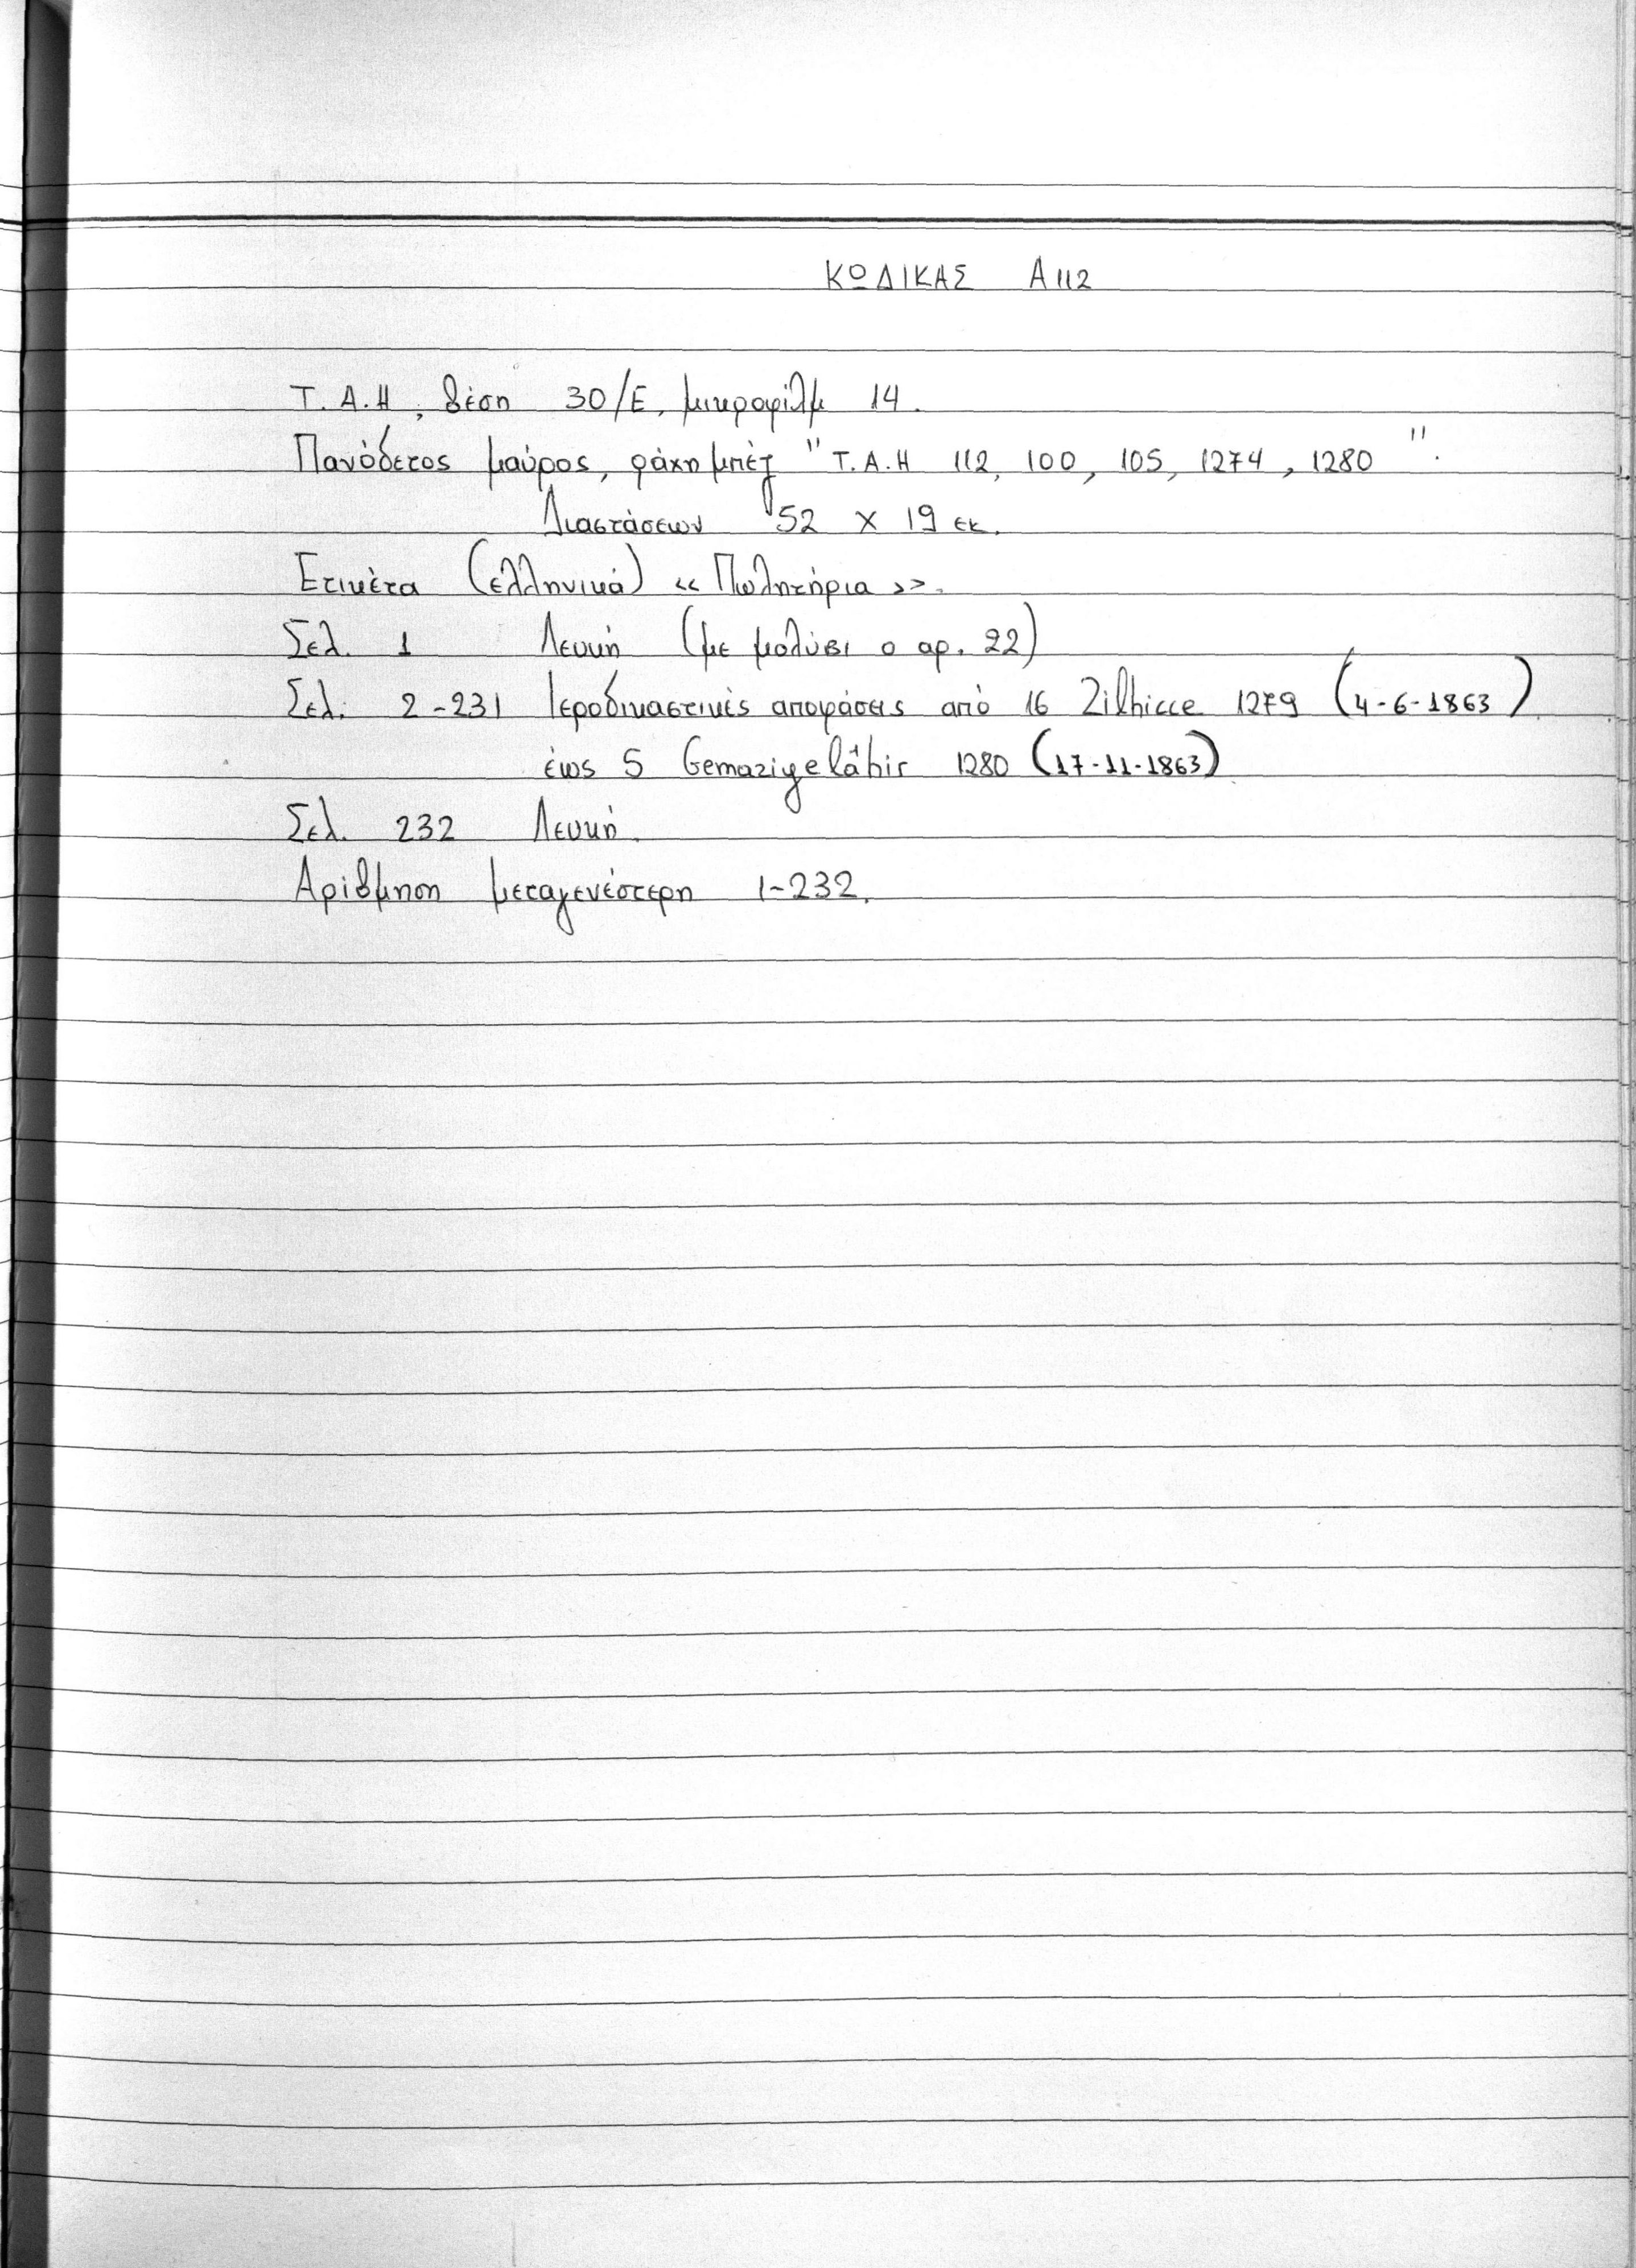 ΚΩΔΙΚΑΣ Α112
Τ.Α.Η, θέση 30/Ε, μικροφίλμ 14.
Πανόδετος μαύρος, ράχη μπέζ "Τ.Α.Η 112, 100, 105, 1274, 1280".
Διαστάσεων 52 x 19 εκ.
Ετικέτα (ελληνικά) «Πωλητήρια».
Σελ. 1 Λευκή (με μολύβι ο αρ. 22)
Σελ. 2-231 Ιεροδικαστικές αποφάσεις από 16 Zilhicce 1279 (4-6-1863)
έως 5 Cemaziyelâhir 1280 (17-11-1863)
Σελ. 232 Λευκή.
Αρίθμηση μεταγενέστερη 1-232.